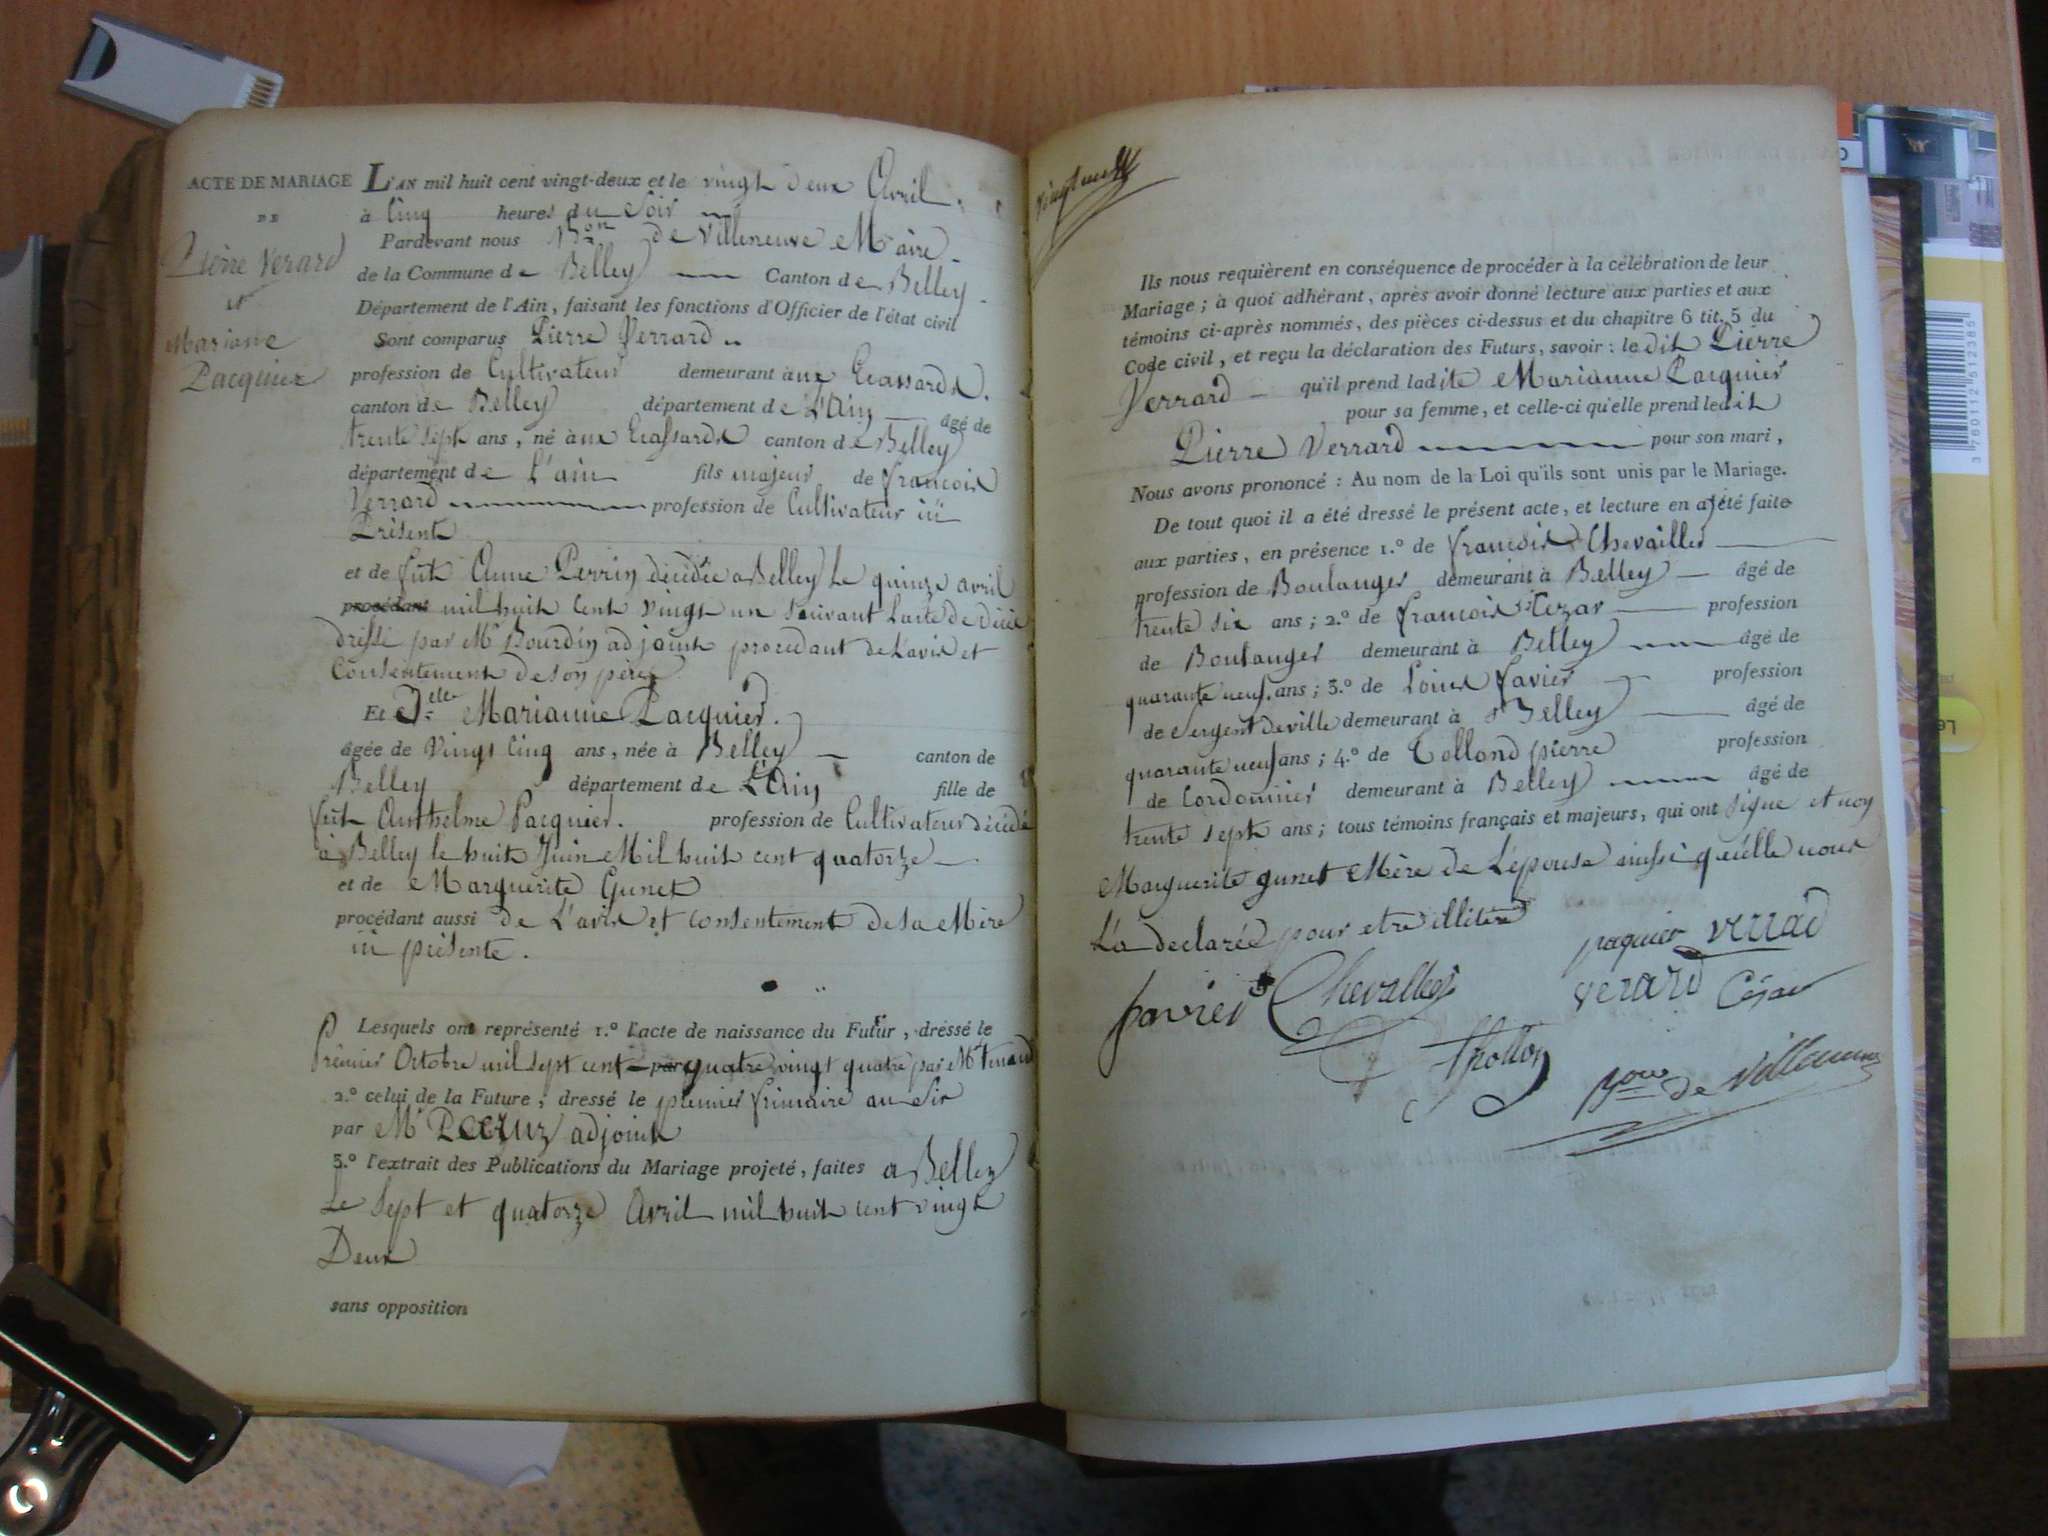 ACTE DE MARIAGE
DE
Pierre Verard
et
Marianne
Pacquier
L'AN mil huit cent vingt-deux et le vingt deux Avril
à Cinq heures du Soir
Pardevant nous Bon de Villeneuve Maire
de la Commune de Belley Canton de Belley
Département de l'Ain, faisant les fonctions d'Officier de l'état civil
Sont comparus Pierre Verrard
profession de Cultivateur demeurant aux Ecassards
canton de Belley département de L'Ain âgé de
trente sept ans, né aux Ecassards canton de Belley
département de L'ain fils majeur de francois
Verrard profession de Cultivateur ici
Présent
et de fût Anne Perrin décédée a Belley le quinze avril
procédant mil huit Cent vingt un suivant L'acte de décé
dressé par Mr Bourdin adjoint procedant de L'avis et
Consentement de son père
Et Delle Marianne Pacquier.
âgée de Vingt cinq ans, née à Belley canton de
Belley département de L'Ain fille de
fût Anthelme Pacquier. profession de Cultivateur décédé
à Belley le huit Juin Mil huit cent quatorze
et de Marguerite Gunet
procédant aussi de L'avis et consentement de sa Mère
ici présente.
Lesquels ont représenté 1.º l'acte de naissance du Futur, dressé le
Premier Octobre mil sept cent par quatre vingt quatre par Mr
2.º celui de la Future, dressé le premier frimaire an Six
par Mr adjoint
3.º l'extrait des Publications du Mariage projeté, faites a Belley
Le Sept et quatorze Avril mil huit cent vingt
Deux
sans opposition
Ils nous requièrent en conséquence de procéder à la célébration de leur
Mariage; à quoi adhérant, après avoir donné lecture aux parties et aux
témoins ci-après nommés, des pièces ci-dessus et du chapitre 6 tit. 5 du
Code civil, et reçu la déclaration des Futurs, savoir: le dit Pierre
Verrard qu'il prend ladite Marianne Pacquier
pour sa femme, et celle-ci qu'elle prend ledit
Pierre Verrard pour son mari,
Nous avons prononcé: Au nom de la Loi qu'ils sont unis par le Mariage.
De tout quoi il a été dressé le présent acte, et lecture en a été faite
aux parties, en présence 1.º de francois Chevailler
profession de Boulanger demeurant à Belley âgé de
trente six ans; 2.º de francois Cezar profession
de Boulanger demeurant à Belley âgé de
quarante neuf ans; 3.º de Louis favier profession
de Sergent de ville demeurant à Belley âgé de
quarante neuf ans; 4.º de Tollond pierre profession
de Cordonnier demeurant à Belley âgé de
trente sept ans; tous témoins français et majeurs, qui ont signe et non
Marguerite gunet Mère de L'épouse ainsi qu'elle nous
L'a declarée pour etre illitéré
paquier verrad
favier Chevallier verard César
Thollon
Bon de Villeneuve
3 760112 512385